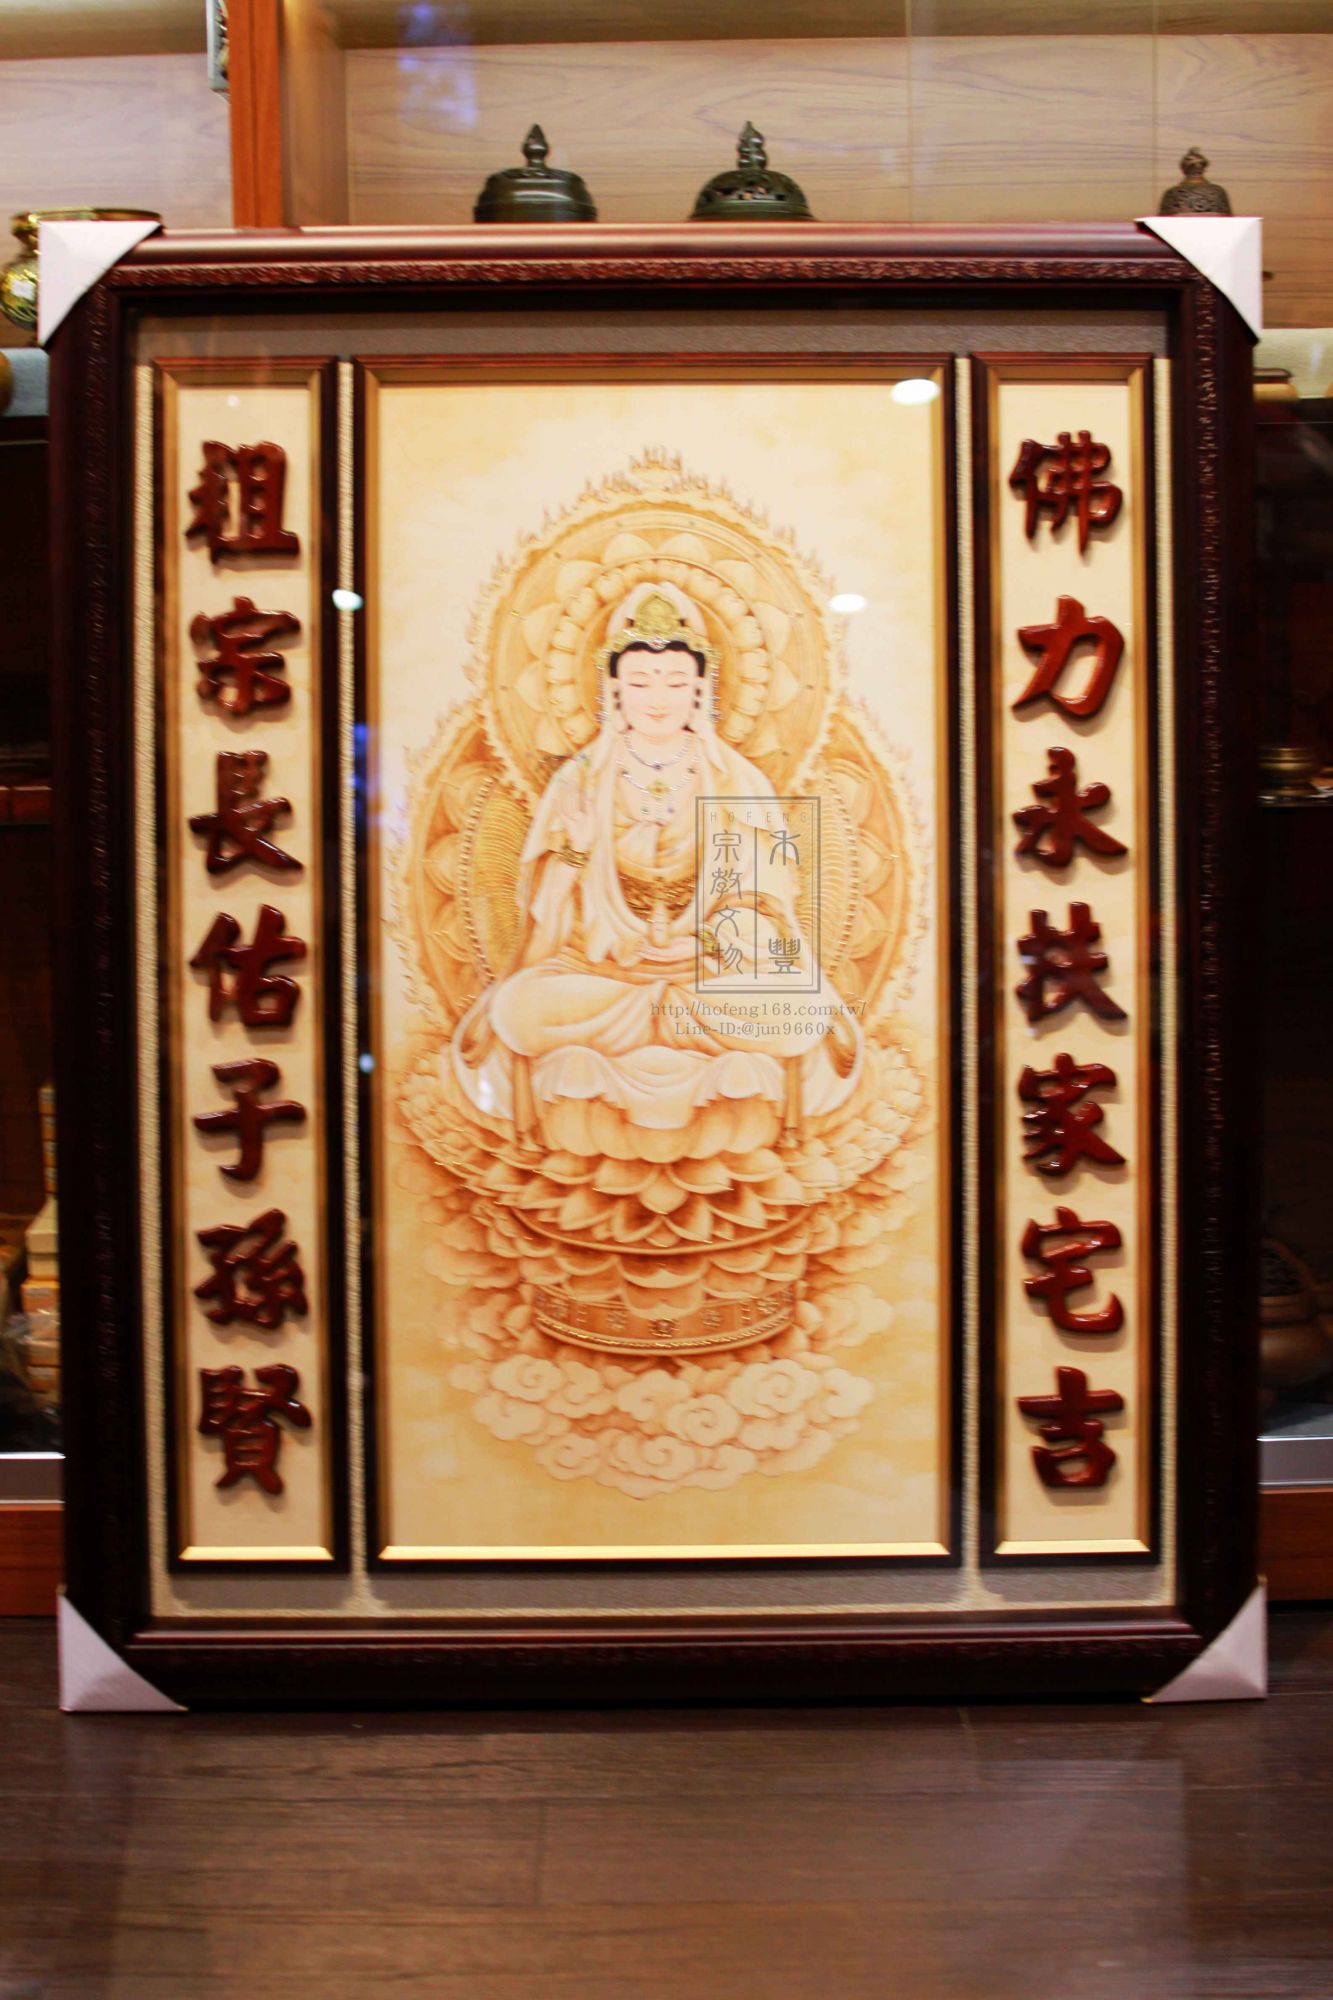 佛力永扶家宅吉
祖宗長佑子孫賢
HOFENG
禾豐
宗教文物
http://hofeng168.com.tw/
Line-ID:@jun9660x